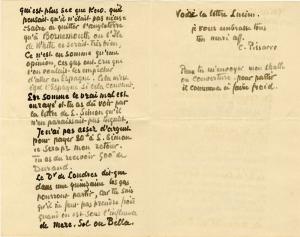 qui est plus sec que Kew. qui
pensait qu'il n'était pas néces-
saire de quitter l'Angleterre
qu'à Bournemouth ou l'Ile
de White ce serait très bien,
Ce n'est en somme qu'une
opinion, ces gens out. cru que
l'on voulait les empêcher
d'aller en Espagne. Cela m'est
égal l'Espagne si cela convient.
En somme le vrai mal est
enrayé et tu as dû voir par
la lettre de E. Simon qu'il
n'en paraissait plus inquiet,
Je n'ai pas assez d'argent
pour payer 80£ à E. Simon
ce sera pr mon retour.
tu as dû recevoir 500f de
Durand.
Le Dr de Londres dit que
dans une quinzaine les gas
pourront partir, car tu sais
qu'il ne faut pas prendre froid
quand on est sous l'influence
de Merc. Sol ou Bella.
Voici la lettre Lucien.
je vous embrasse tous
ton mari aff.
C. Pissarro
Peux tu m'envoyer mon shall
ou couverture, pour partir
il commence à faire froid.